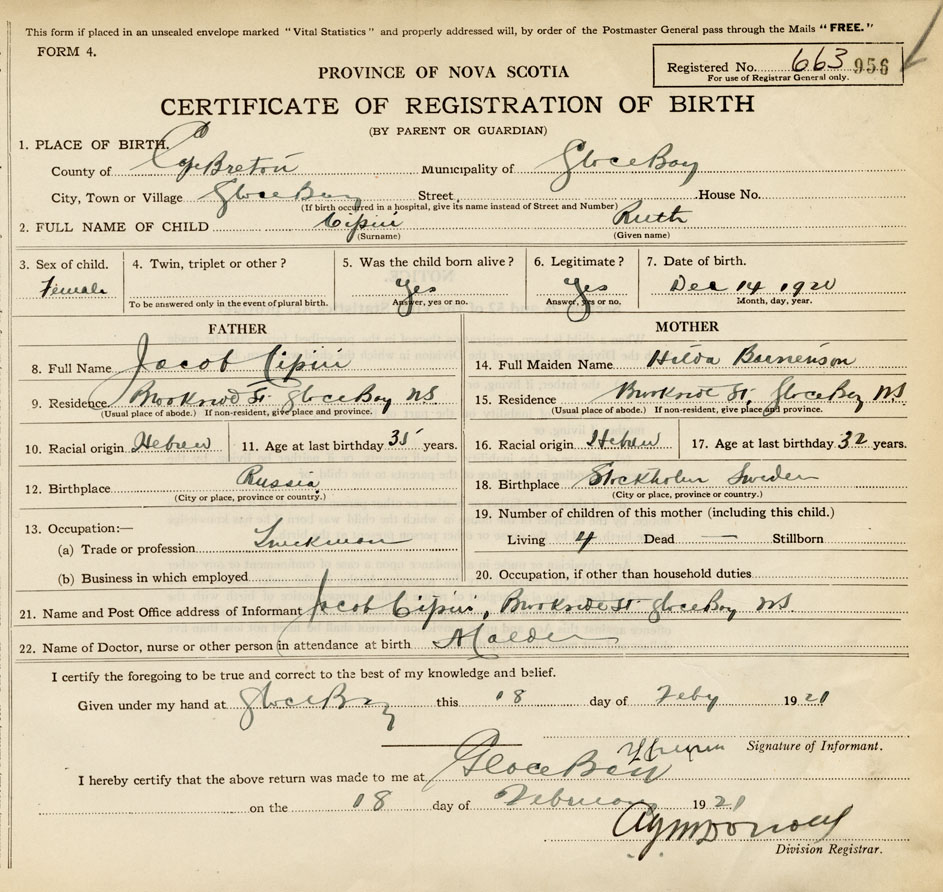 This form if placed in an unsealed envelope marked "Vital Statistics" and properly addressed will, by order of the Postmaster General pass through the Mails "FREE."
FORM 4.
Registered No. 663 956
For use of Registrar General only.
PROVINCE OF NOVA SCOTIA
CERTIFICATE OF REGISTRATION OF BIRTH
(BY PARENT OR GUARDIAN)
1. PLACE OF BIRTH.
County of Cape Breton Municipality of Glace Bay
City, Town or Village Glace Bay Street House No.
(If birth occurred in a hospital, give its name instead of Street and Number)
2. FULL NAME OF CHILD Cipin Ruth
(Surname) (Given name)
3. Sex of child. 4. Twin, triplet or other? 5. Was the child born alive? 6. Legitimate? 7. Date of birth.
Female Yes Yes Dec 14 1920
To be answered only in the event of plural birth. Answer, yes or no. Answer, yes or no. Month, day, year.
FATHER MOTHER
8. Full Name Jacob Cipin 14. Full Maiden Name Hilda
9. Residence Brookside St Glace Bay NS 15. Residence Brookside St, Glace Bay NS
(Usual place of abode.) If non-resident, give place and province. (Usual place of abode.) If non-resident, give place and province.
10. Racial origin Hebrew 11. Age at last birthday 35 years. 16. Racial origin Hebrew 17. Age at last birthday 32 years.
12. Birthplace Russia 18. Birthplace Stockholm Sweden
(City or place, province or country.) (City or place, province or country.)
13. Occupation:— 19. Number of children of this mother (including this child.)
(a) Trade or profession Truckman Living 4 Dead — Stillborn
(b) Business in which employed 20. Occupation, if other than household duties
21. Name and Post Office address of Informant Jacob Cipin, Brookside St Glace Bay NS
22. Name of Doctor, nurse or other person in attendance at birth
I certify the foregoing to be true and correct to the best of my knowledge and belief.
Given under my hand at Glace Bay this 18 day of Feby 1921
Signature of Informant.
I hereby certify that the above return was made to me at Glace Bay
on the 18 day of February 1921
Division Registrar.